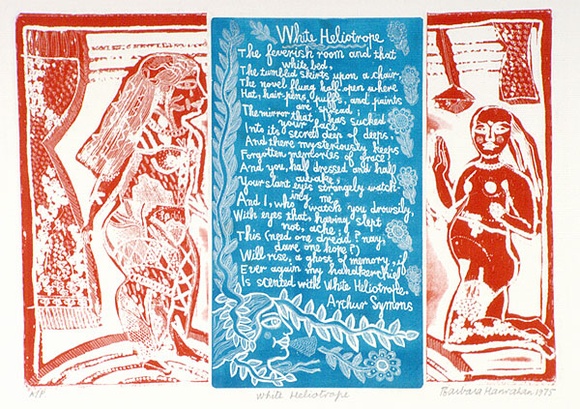 White Heliotrope
The feverish room and that
white bed,
The tumbled skirts upon a chair,
The novel flung half open where
Hat, hair-pins, puffs, and paints
are spread;
The mirror that has sucked
your face
Into its secret deep of deeps,
And there mysteriously keeps
Forgotten memories of grace;
And you, half dressed and half
awake,
Your slant eyes strangely watch-
ing me,
And I, who watch you drowsily,
With eyes that, having slept
not, ache;
This (need one dread? nay,
dare one hope?)
Will rise, a ghost of memory, if
Ever again my handkerchief
Is scented with White Heliotrope.
Arthur Symons
A/P White Heliotrope Barbara Hanrahan 1975